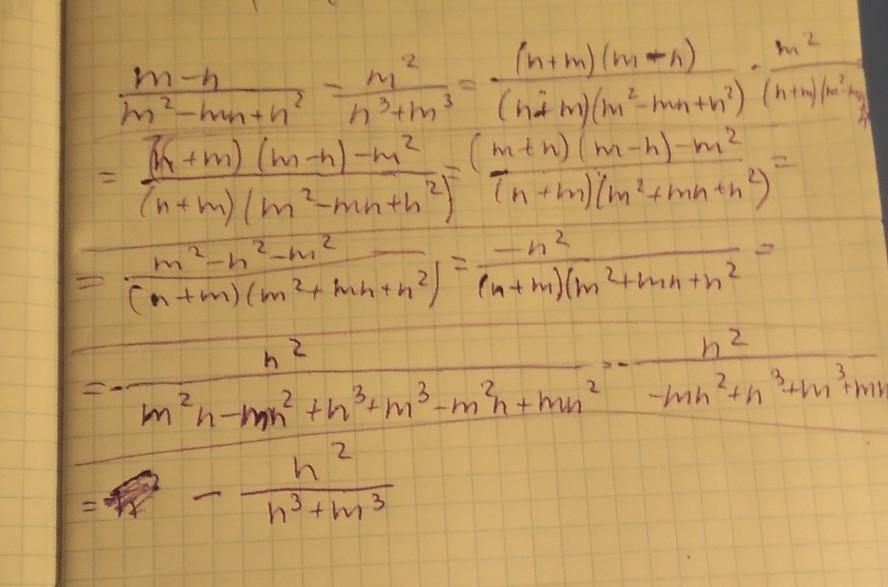 (m-n)/(m²-mn+n²) - m²/(n³+m³) = (n+m)(m-n)/((n+m)(m²-mn+n²)) - m²/((n+m)(m²-mn
= ((n+m)(m-n)-m²)/((n+m)(m²-mn+n²)) = ((m+n)(m-n)-m²)/((n+m)(m²+mn+n²)) =
= (m²-n²-m²)/((n+m)(m²+mn+n²)) = -n²/((n+m)(m²+mn+n² =
= - n²/(m²n-mn²+n³+m³-m²n+mn²) = - n²/(-mn²+n³+m³+mn
= - n²/(n³+m³)